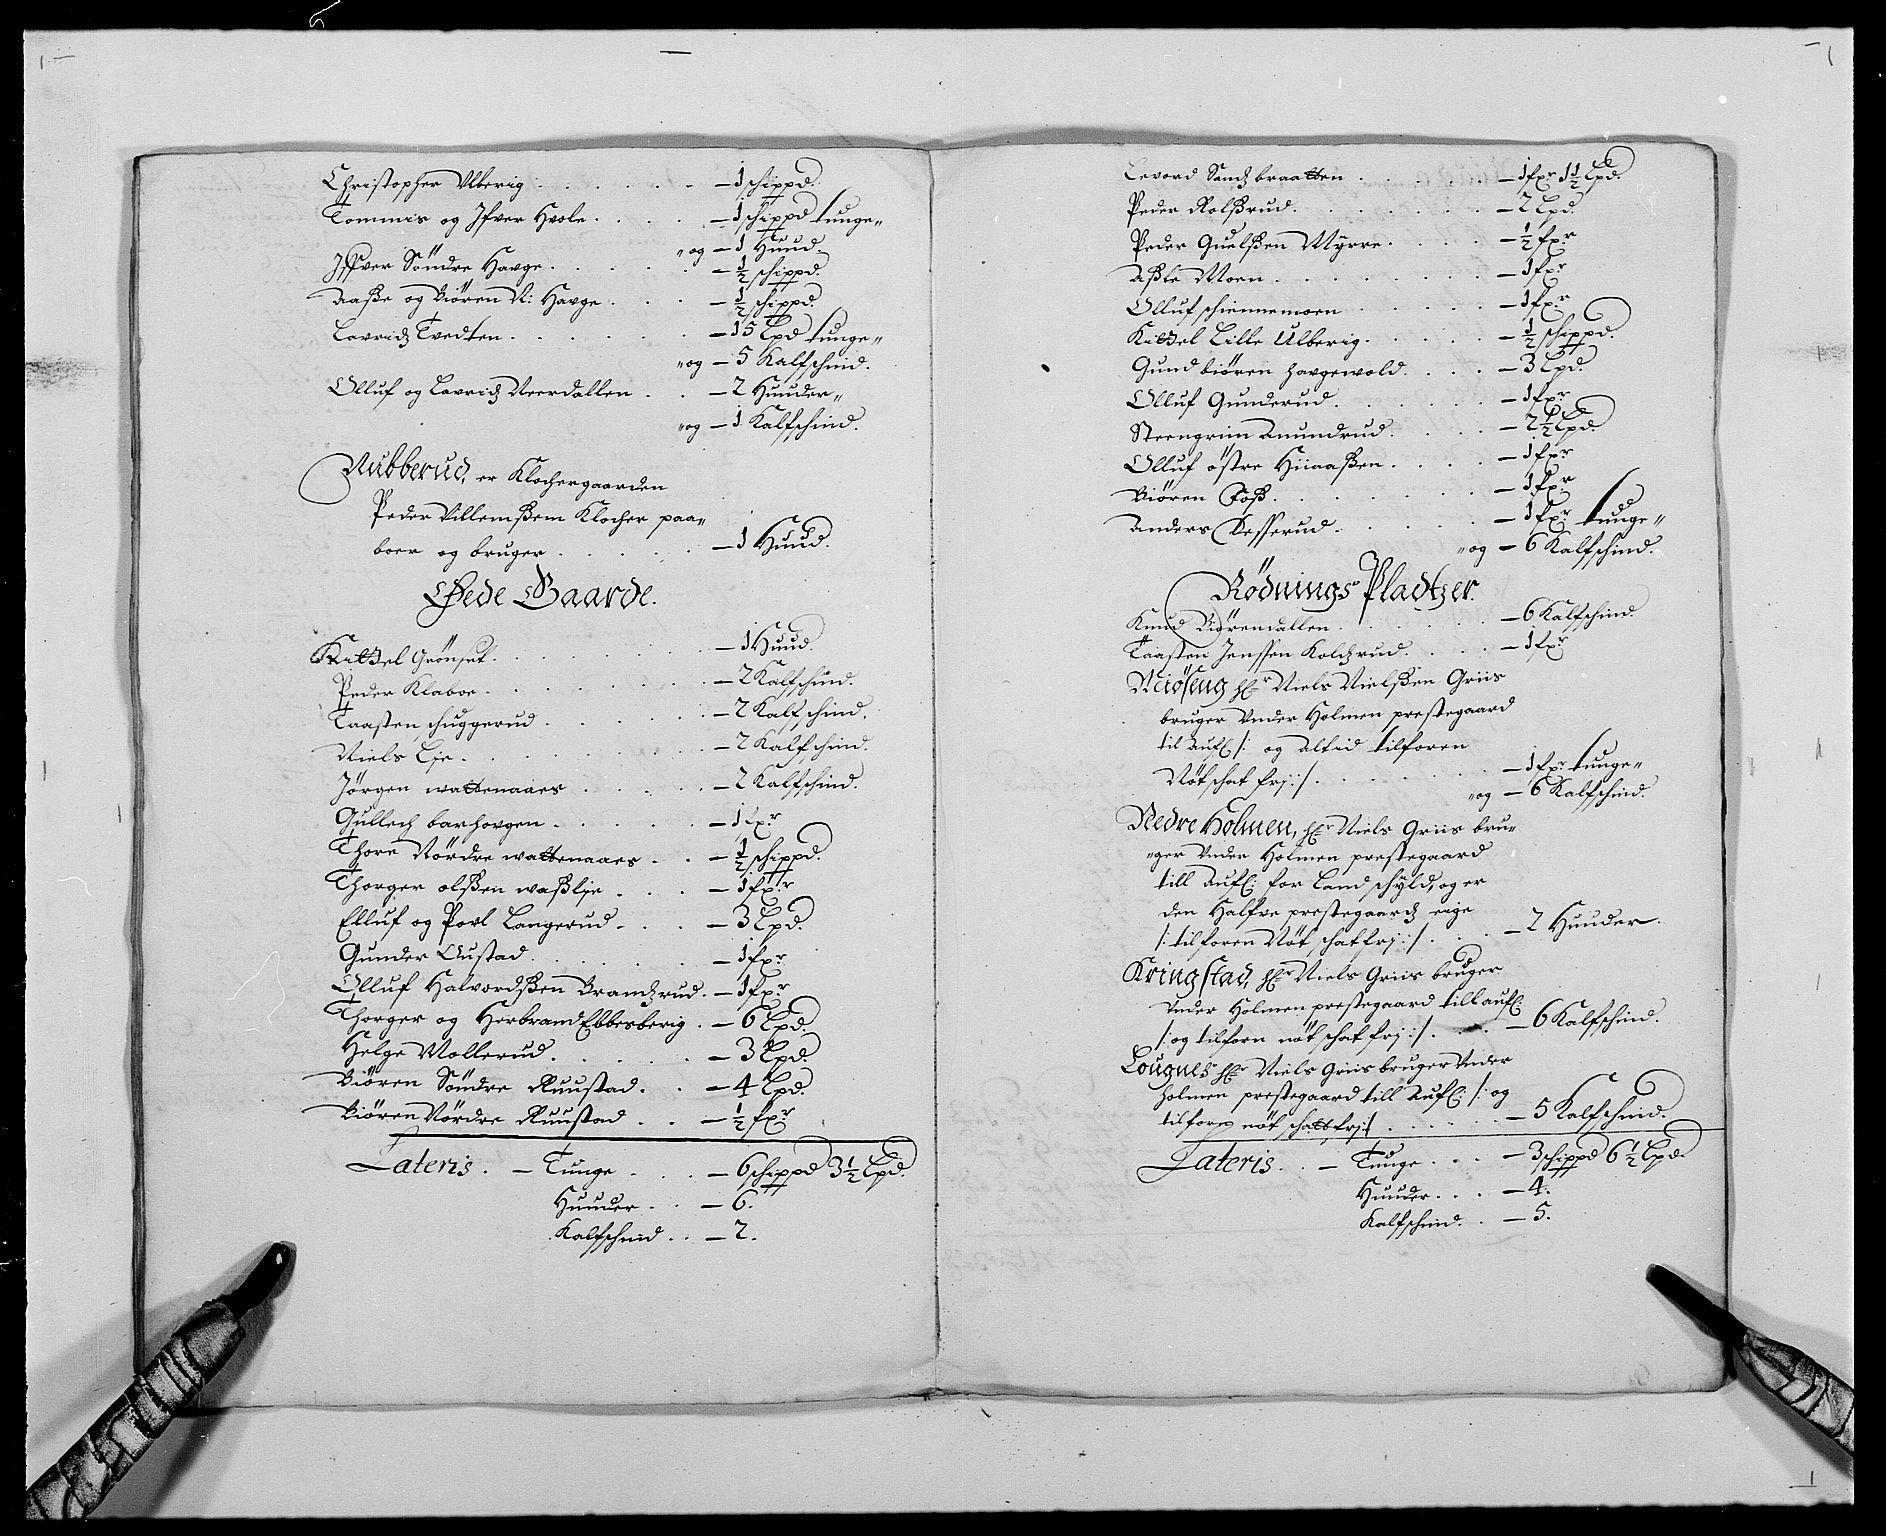 Christopher Ulberig . . . . . . – 1 schippd.
Tommis og Jfver Hvole . . . . – 1 schippd tunge„
„og – 1 Huud
Jffver Söndre Havge . . . . . – ½ schippd.
Aaße og Biören N: Havge . . . – ½ schippd
Lavridz Tvedten . . . . . . – 15 Lpd tunge„
„og – 5 Kalfschind.
Olluf og Lavridz Neerdallen . . – 2 Huuder„
„og – 1 Kalfschind.
Rubberud, er Klochergaarden
Peder Villemßem Klocher paa„
boer og bruger . . . . . – 1 Huud.
Øede Gaarde.
Kittel Grönset . . . . . . . – 1 Huud.
Peder Klaboe . . . . . . . – 2 Kalfschind.
Taasten schuggerud . . . . . – 2 Kalfschind.
Niels Lje . . . . . . . . – 2 Kalfschind.
Jörgen wattenaaes . . . . . – 2 Kalfschind.
Gullech barhovgen . . . . . – 1 fxr
Thore Nördre wattenaaes . . – ½ schippd.
Thorger olßen waßlje . . . . – 1 fxr
Elluf og Povl Langerud . . . – 3 Lpd.
Gunder Austad . . . . . . – 1 fxr
Olluf Halvordßen Brandzrud . – 1 fxr
Thorger og Herbrand Ebbesberig . – 6 Lpd.
Helge Mollerud . . . . . – 3 Lpd.
Biören Söndre Ruustad . . – 4 Lpd.
Biören Nördre Ruustad . . – ½ fxr
Lateris . – Tunge . . . – 6 schippd 3½ Lpd.
Huuder . . – 6.
Kalfschind . . – 2.
Levord Sandzbraatten . . . . . – 1 fxr 1½ Lpd.
Peder Rolßrud . . . . . . . – 2 Lpd
Peder Guelßen Myrre . . . . – ½ fxr
Aßle Moen . . . . . . . . – 1 fxr
Olluf schiennemoen . . . . . – 1 fxr
Kittel Lille Ulberig . . . . . – ½ schippd.
Gundbiören havgewold . . . . – 3 Lpd.
Olluf Gunderud . . . . . . – 1 fxr
Steengrim Amundrud . . . . – 2½ Lpd.
Olluf östre Hiiaaßen . . . . – 1 fxr
Biören Foß . . . . . . . – 1 fxr
Anders Kesserud . . . . . – 1 fxr tunge„
„og – 6 Kalfschind.
Rödnings Pladtzer.
Knud Biörendallen . . . . . – 6 Kalfschind
Taasten Jenssen Kolchrud . . . – 1 fxr
Miöseng hEr Niels Nielßen Griis
bruger Under Holmen prestegaard
til Aufl: /: og altid tilforen
Nöt schat frj :/ . . . . . . . – 1 fxr tunge„
„og – 6 Kalfschind.
Nedre Holmen, hEr Niels Griis bru„
„ger Under Holmen prestegaard
till Aufl: for Landschyld, og er
den Halfve prestegaardz eige
/: tilforen Nöt schat frj :/ . . . – 2 Huuder.
Kringstad, hEr Niels Griis bruger
Under Holmen prestegaard till aufl:
/: og tilforn nöt schat frj :/ . . . – 6 Kalfschind.
Lougnes hEr Niels Griis bruger Under
Holmen prestegaard till Aufl: /: og
tilforn nöt schatt frj :/ . . . . . – 5 Kalfschind.
Lateris . . – Tunge . . . – 3 schippd 6½ Lpd.
Huuder . . . – 4.
Kalfschind . . – 5.